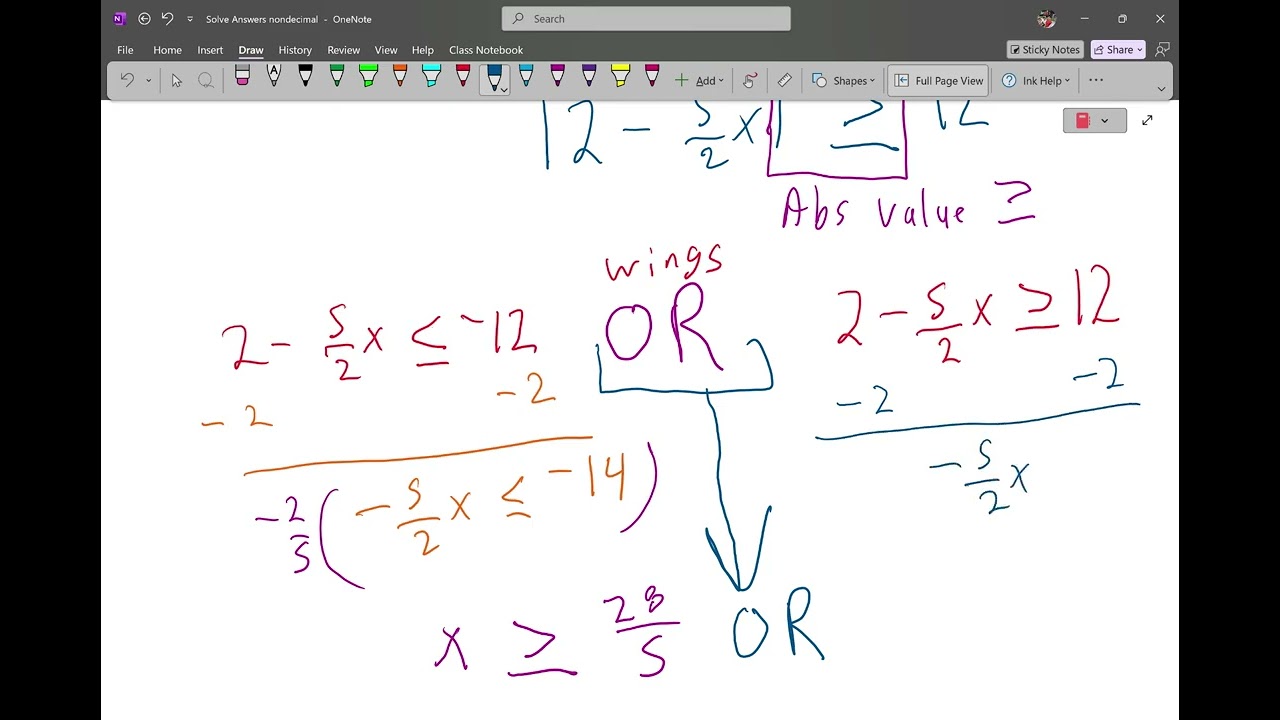 Solve Answers nondecimal - OneNote
Search
File Home Insert Draw History Review View Help Class Notebook
Sticky Notes Share
Add Shapes Full Page View Ink Help
|2 - 5/2 x| ≥ 12
Abs value ≥
wings
2 - 5/2 x ≤ -12 OR 2 - 5/2 x ≥ 12
-2 -2 -2 -2
-2/5 ( -5/2 x ≤ -14 ) -5/2 x
x ≥ 28/5 OR